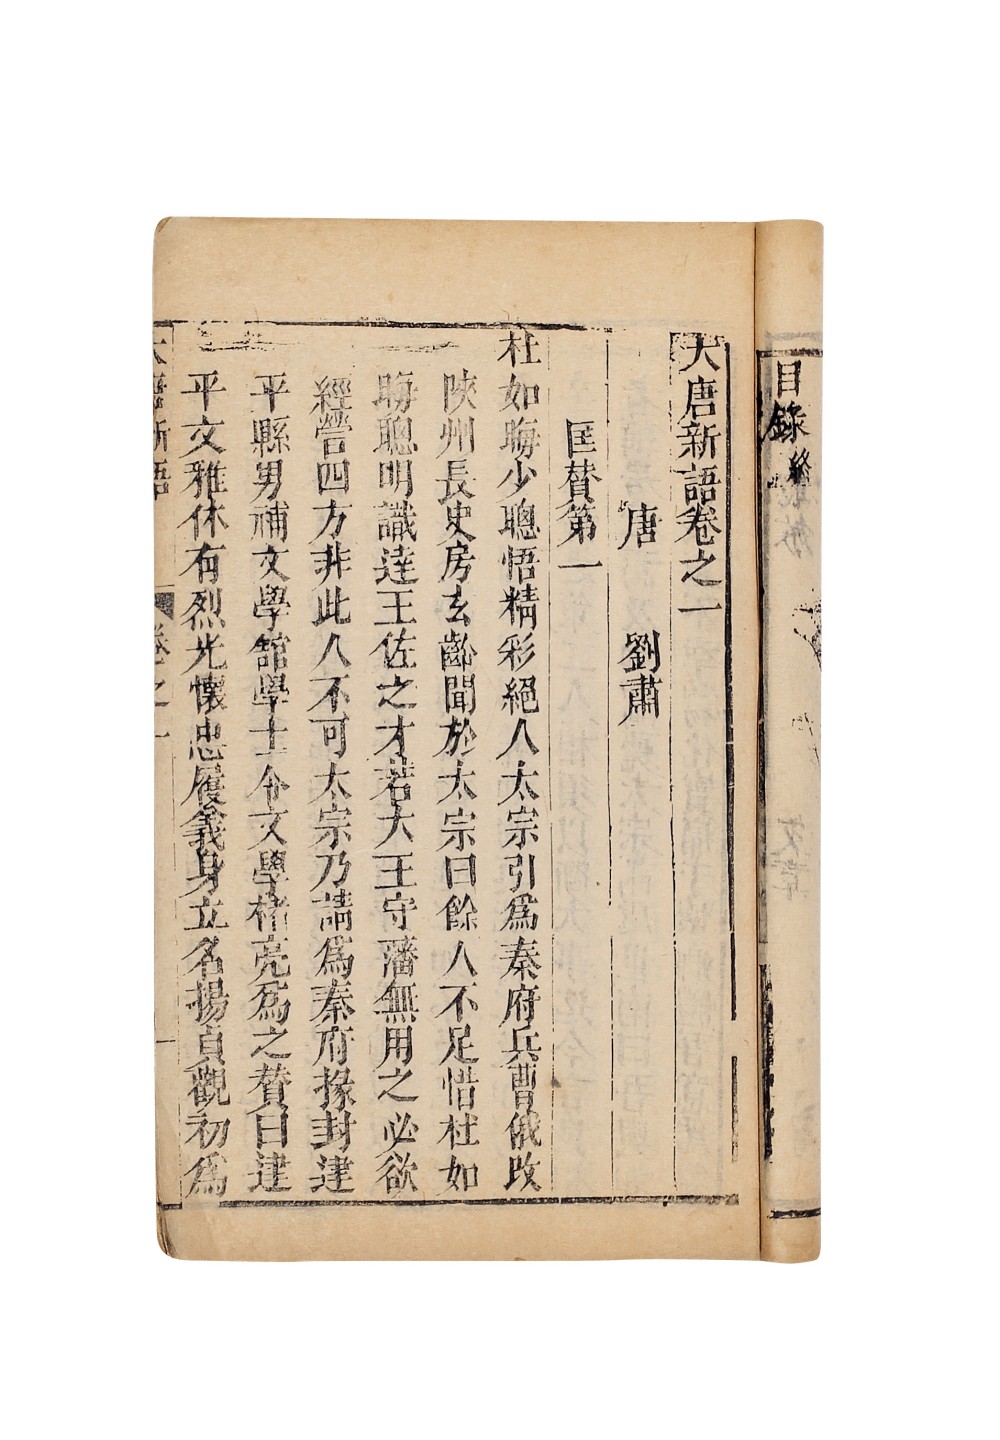 目錄終
大唐新語卷之一
唐 劉肅
匡賛第一
杜如晦少聰悟精彩絕人太宗引爲秦府兵曹俄改
陝州長史房玄齡聞於太宗曰餘人不足惜杜如
晦聰明識達王佐之才若大王守藩無用之必欲
經營四方非此人不可太宗乃請爲秦府掾封建
平縣男補文學館學士令文學褚亮爲之賛曰建
平文雅休有烈光懷忠履義身立名揚貞觀初爲
大唐新語 卷之一 一